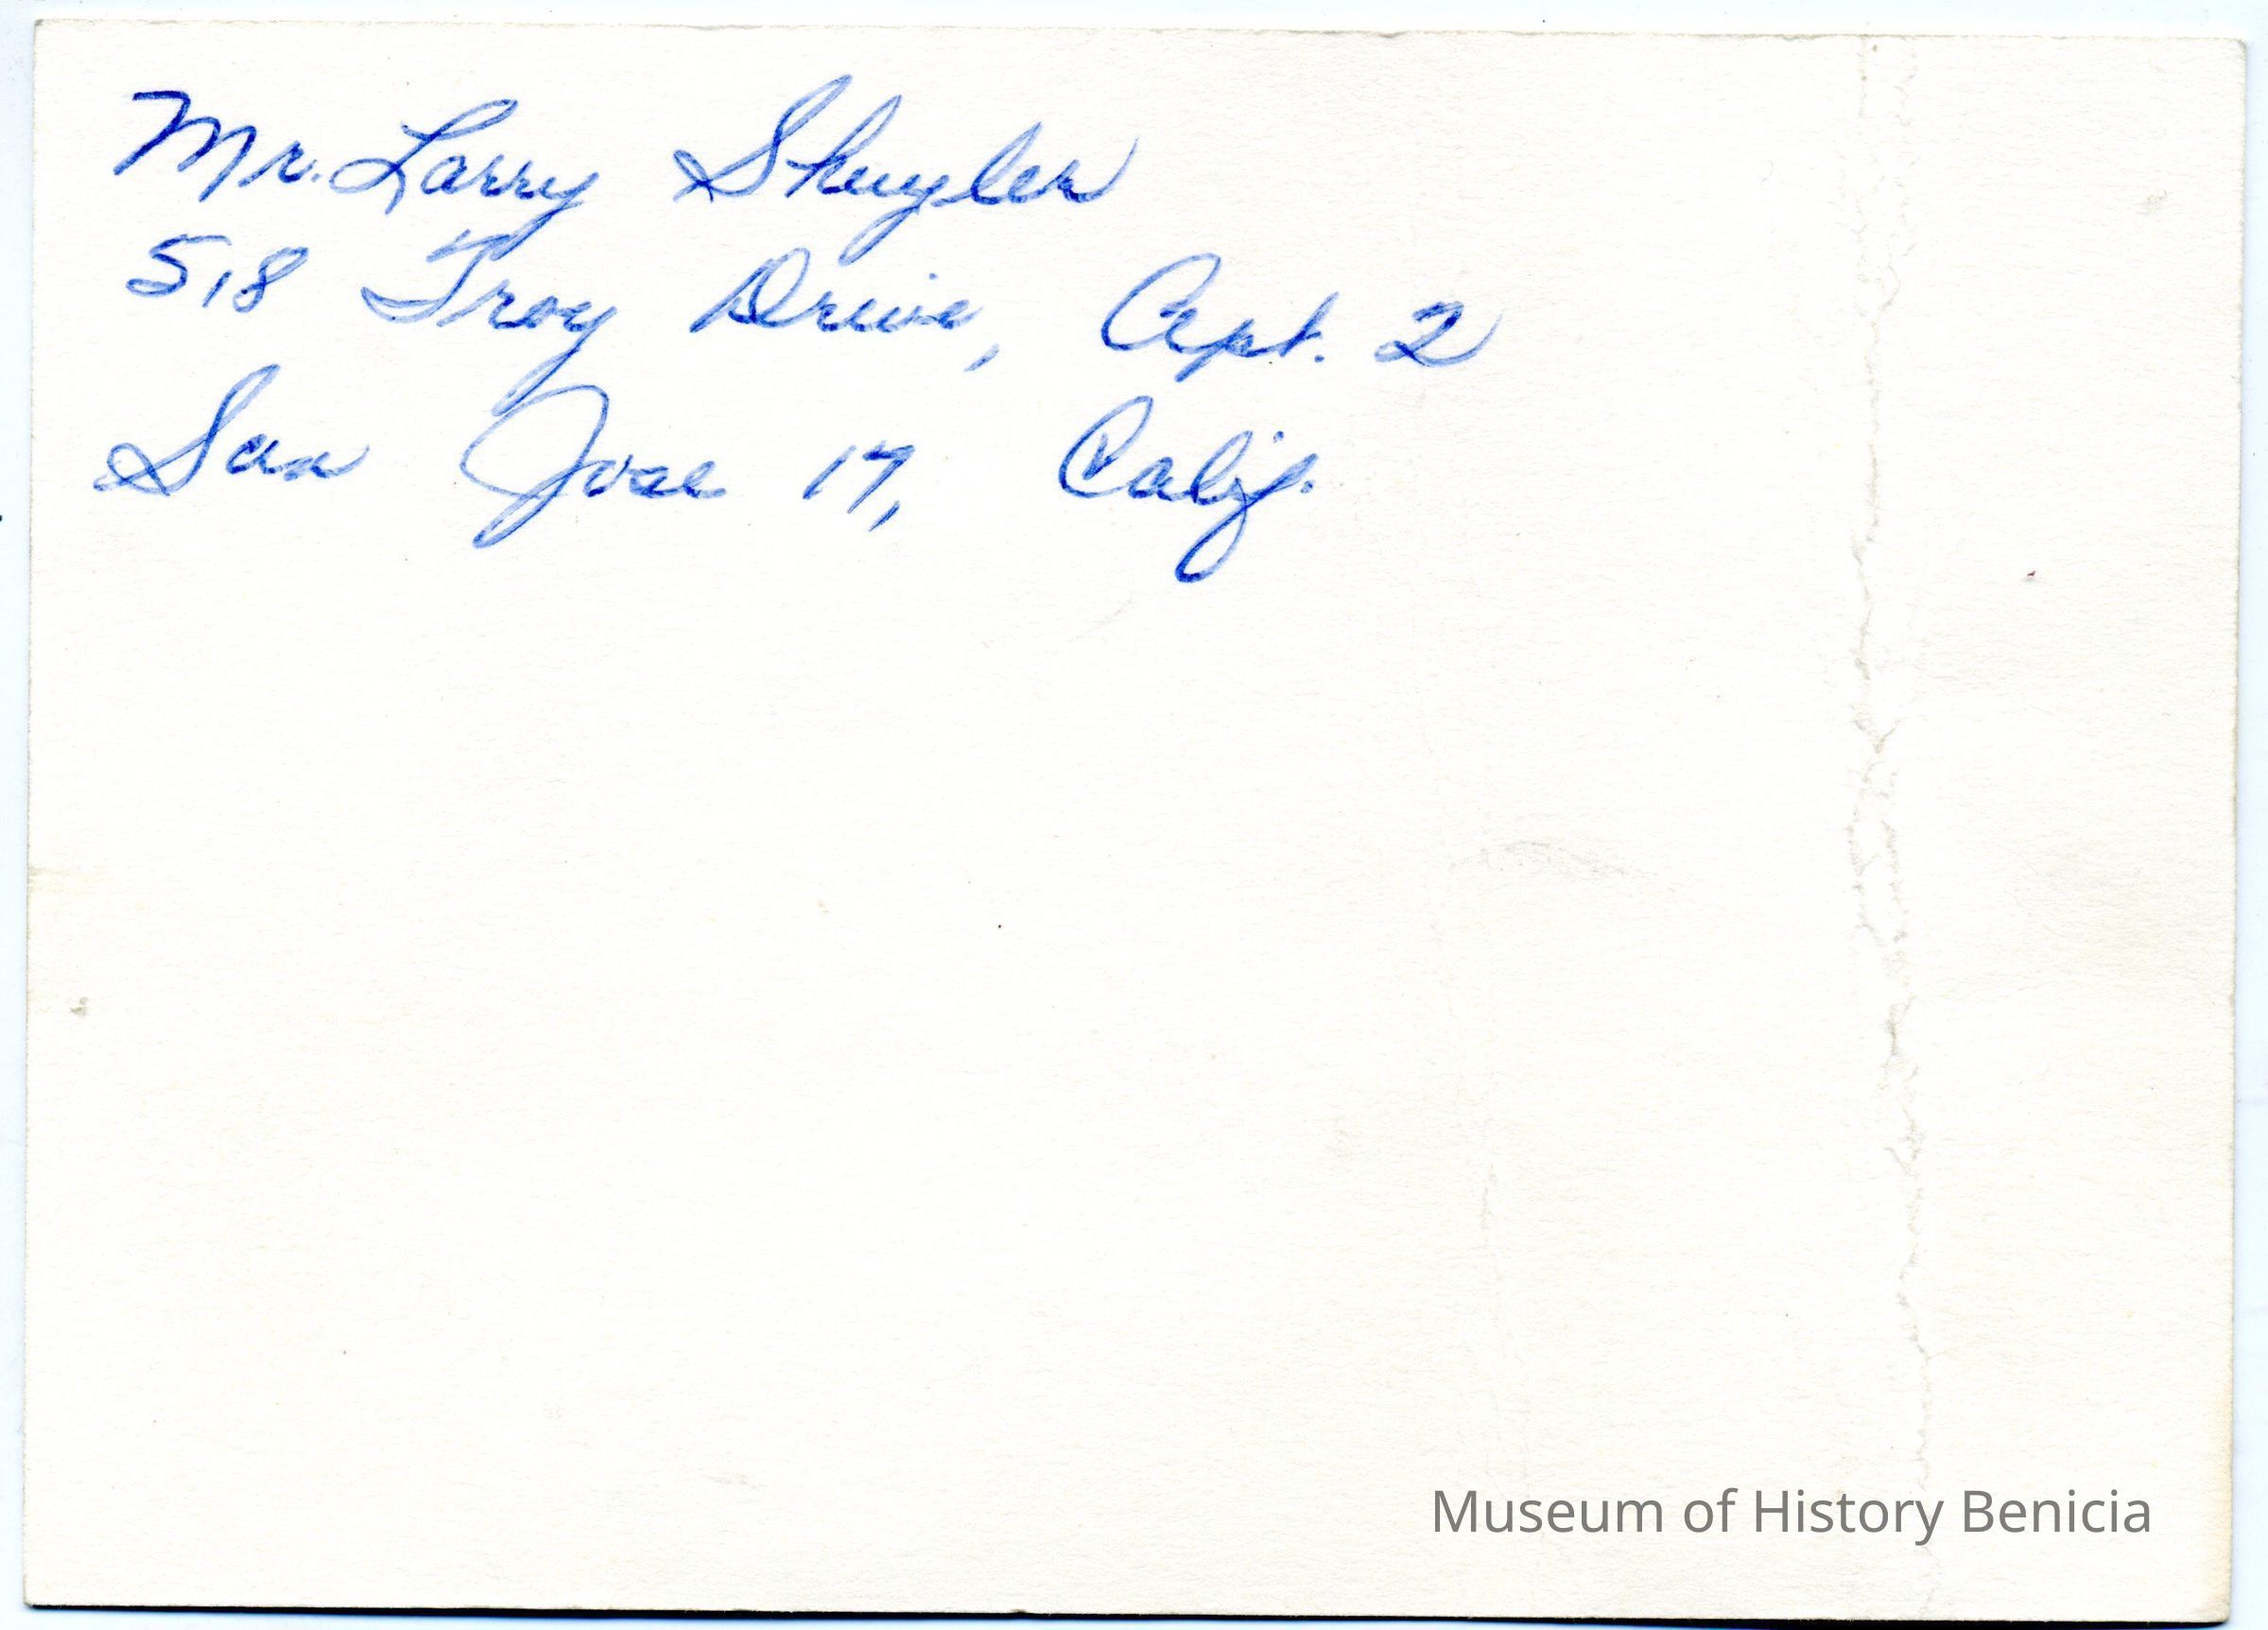 Mr. Larry Shuyler
518 Troy Drive, Apt. 2
San Jose 17, Calif.
Museum of History Benicia